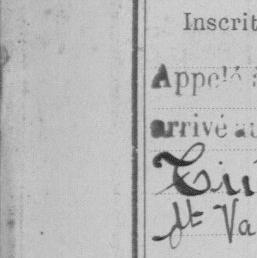 Inscrit
Appelé à
arrivé au
St Va